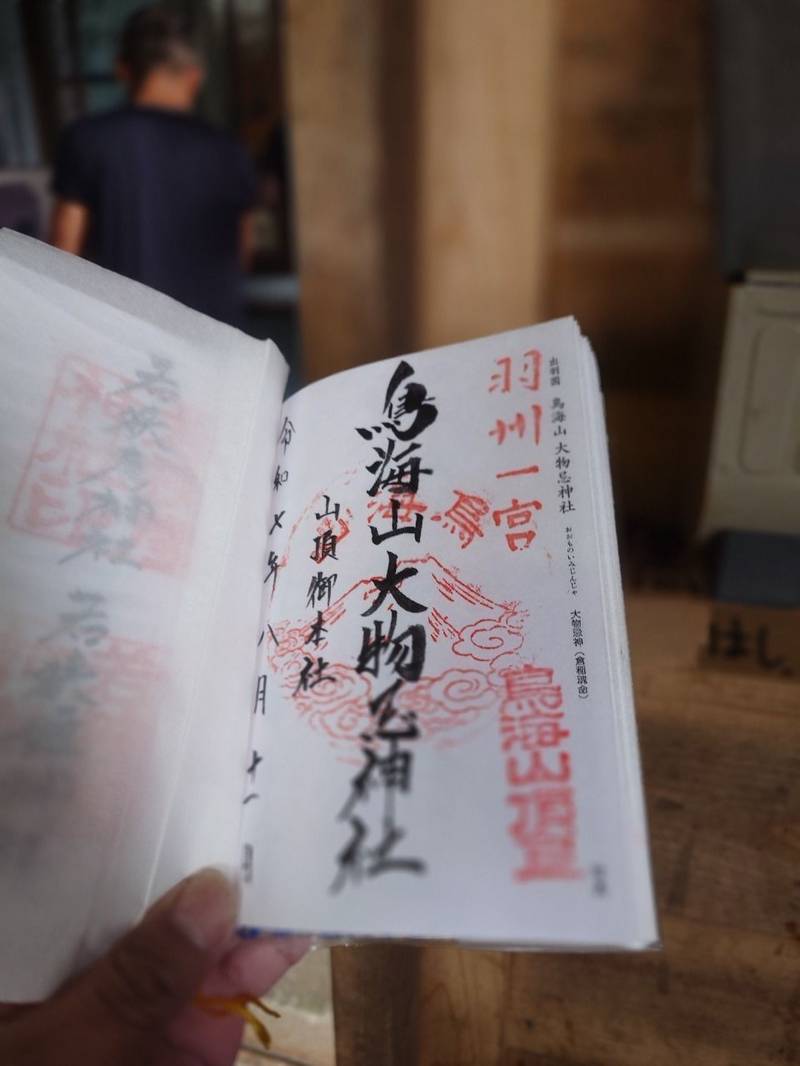 出羽国 鳥海山 大物忌神社 おおものいみじんじゃ 大物忌神（倉稲魂命）
羽州一宮
鳥海山頂
鳥海山
鳥海山大物忌神社
山頂御本社
令和七年八月十一日
若狭彦神社
若狭
はし